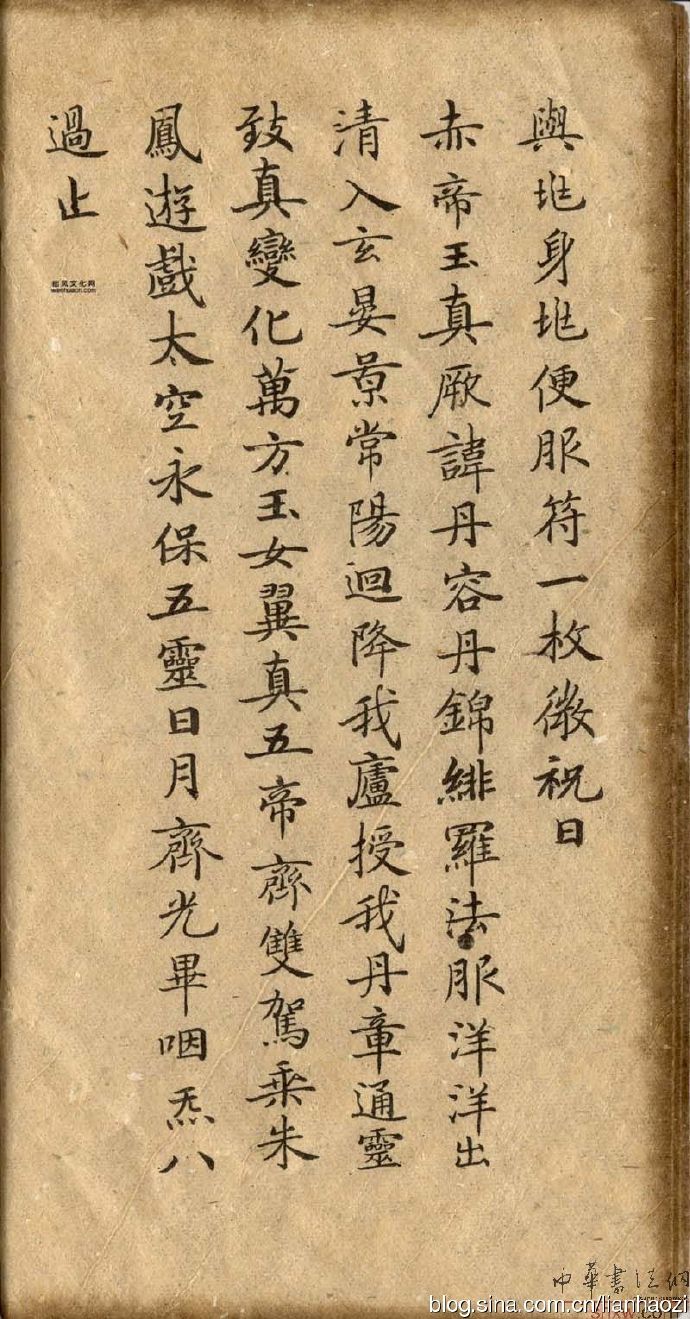 與兆身兆便服符一枚微祝曰
赤帝玉真厥諱丹容丹錦緋羅法服洋洋出
清入玄晏景常陽迴降我廬授我丹章通靈
致真變化萬方玉女翼真五帝齊雙駕乘朱
鳳遊戲太空永保五靈日月齊光畢咽炁八
過止
中華書法網
blog.sina.com.cn/lianhaozi